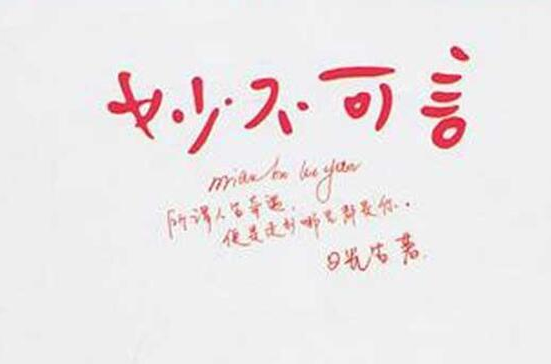 妙不可言
miao bu ke yan
所谓人名奇遇,
便是走到哪里都是你.
时光古著.